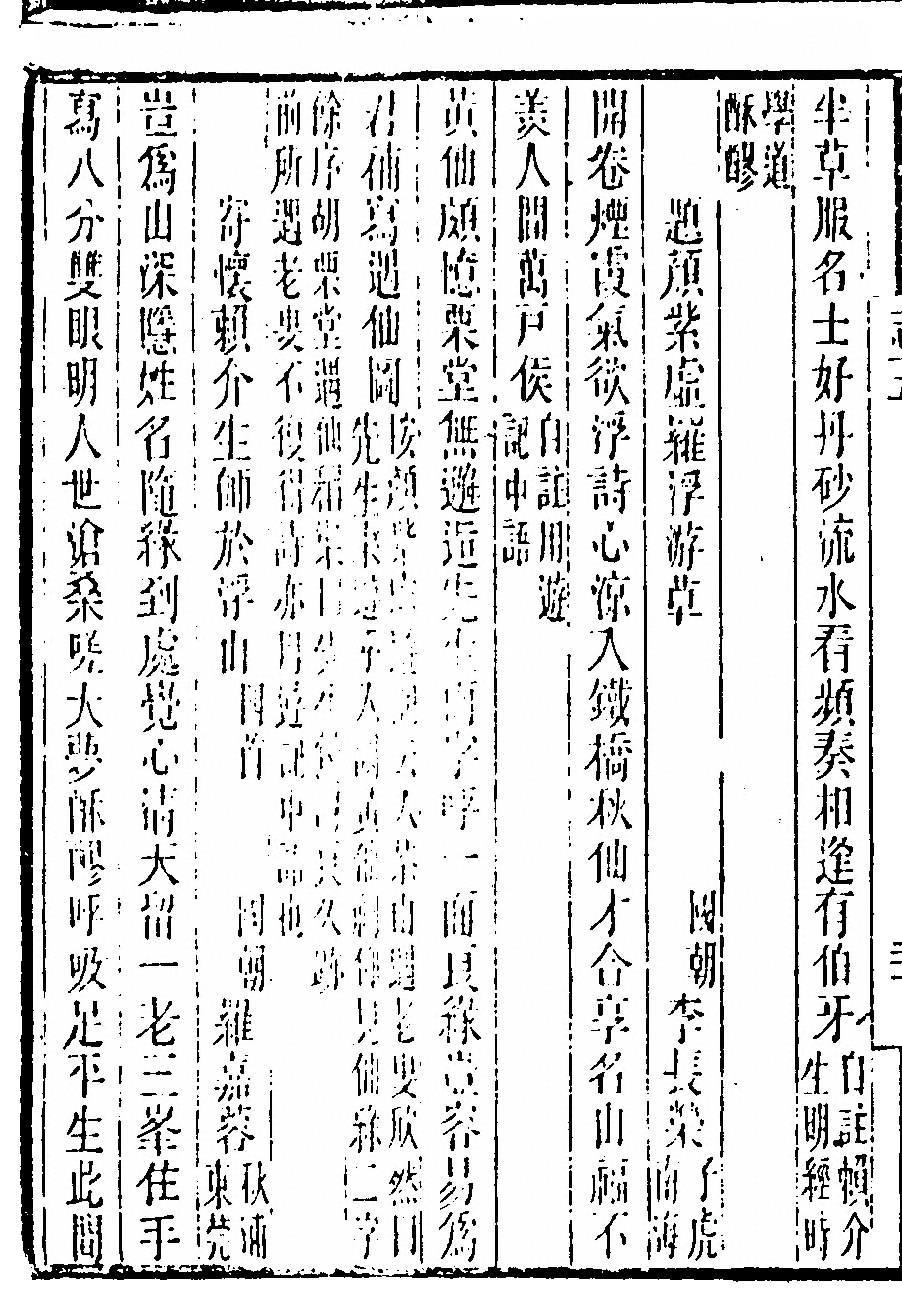 半草服名士好丹砂流水看頻奏相逢有伯牙自註賴介生明經時
學道酥醪
題顏紫虛羅浮游草 國朝李長榮子虎南海
開卷煙霞氣欲浮詩心涼入鐵橋秋仙才合享名山福不
羨人間萬戶侯自註用遊記中語
黃仙頗憶栗堂無邂逅先生面字呼一面良緣豈容易爲
君仙寫遇仙圖按顏紫虛遊記云入茶山遇老叟欣然曰先生來遊乎人間黃仙緣二字
餘序胡栗堂遇仙稿業曰先生良久跡
前所遇老叟不復得詩亦用遊記中語也
寄懷賴介生師於浮山 回首 國朝羅嘉蓉秋浦東莞
豈爲山深隱姓名隨緣到處覺心清天留一老三峯住手
寫八分雙眼明人世滄桑嗟大夢酥醪呼吸足平生此間